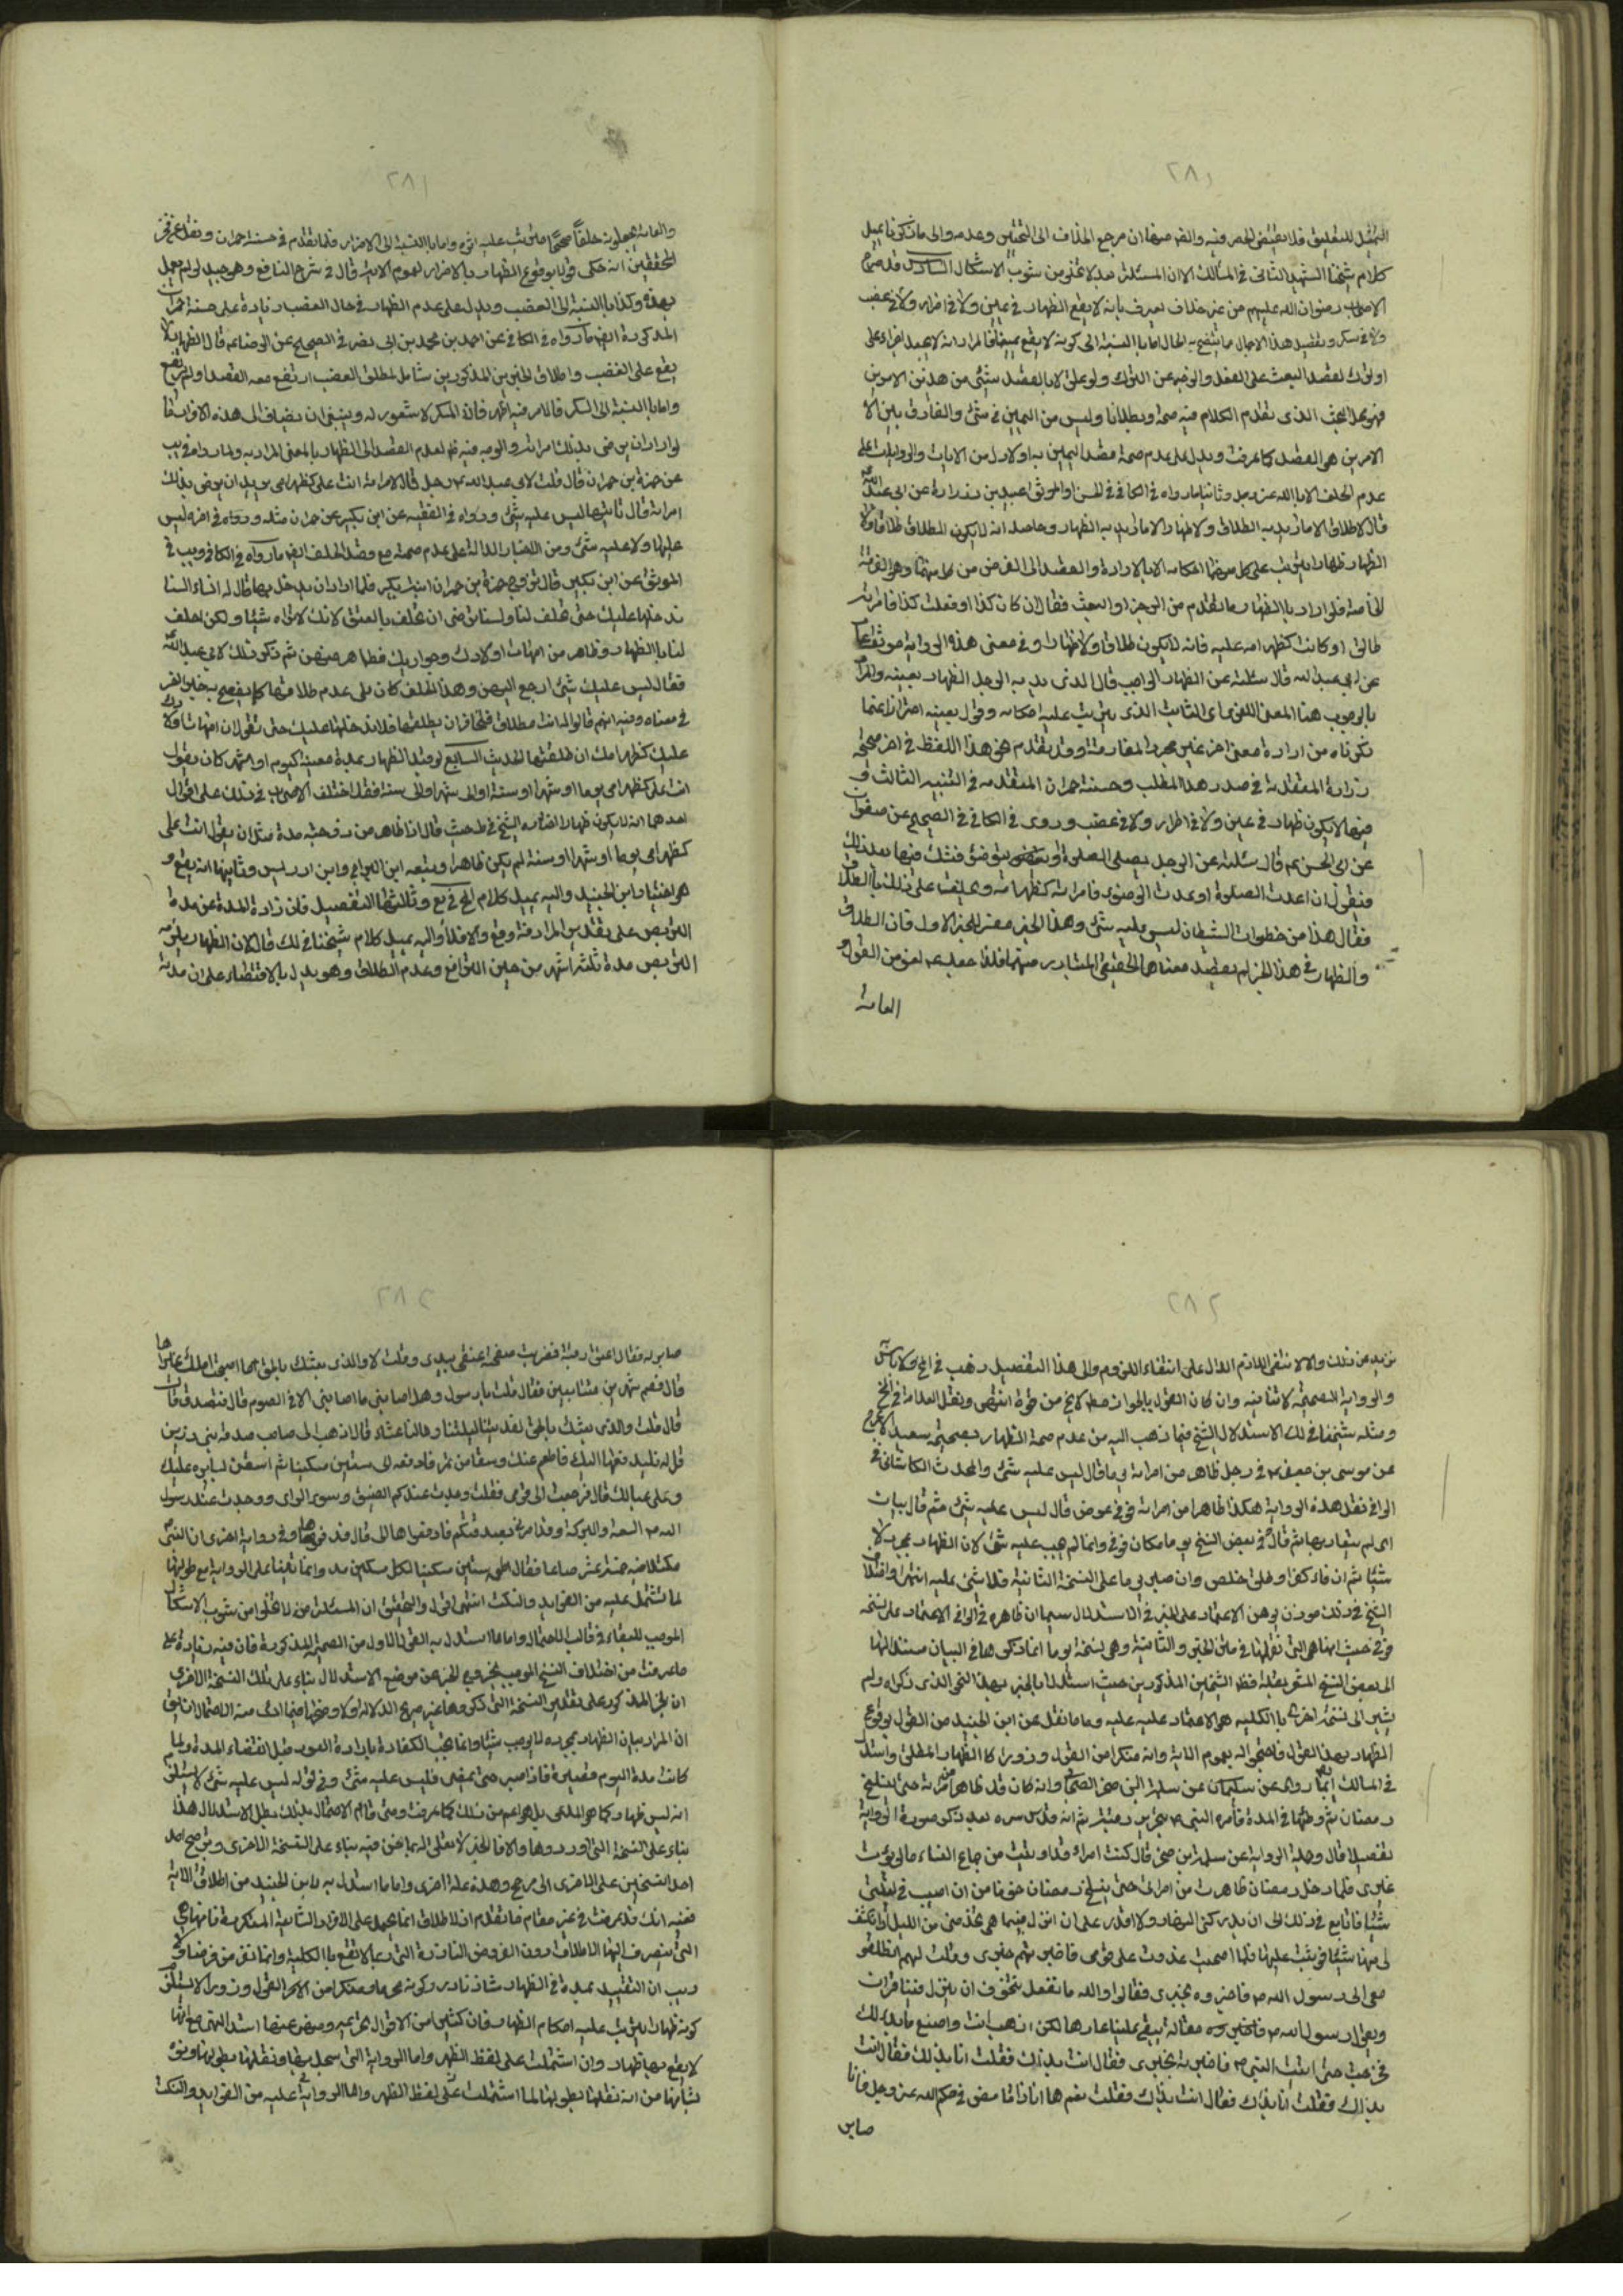 ٢٨٠
كلام شيخنا الشهيد الثاني في المسالك الا ان المسئلة بعد لا تخلو من شوب الاشكال السادس قد صرح
الاصحاب رضوان الله عليهم من غير خلاف يعرف بانه لا يقع الظهار في يمين ولا في اضرار ولا في غضب
ولا في سكر وتفصيل هذا الاجمال ما يتضح به الحال اما بالنسبة الى كونه لا يقع يمينا فالمراد انه لا يجعل جزاء على
او ترك لقصد البعث على الفعل والزجر عن الترك ولو علق لا بالقصد بشئ من هذين الامرين
فهو محل البحث الذي تقدم الكلام فيه صحة وبطلانا وليس من اليمين في شئ والفارق بين الا
الامرين هي القصد كما عرفت ويدل على عدم صحة قصد اليمين به اولا دل من الايات والروايات على
عدم الحلف الا بالله عز وجل وثانيا ما رواه في الكافي في الحسن او الموثق عن عبيد بن زرارة عن ابي عبد الله
قال لا طلاق الا ما اريد به الطلاق ولا ظهار الا ما اريد به الظهار وحاصله انه لا يكون الطلاق طلاقا ولا
الظهار ظهارا يترتب على كل منهما احكامه الا بالارادة والقصد الى الغرض من كل منهما وهو الفرقة
الخاصة فلو اراد بالظهار ما تقدم من الزجر او البعث فقال ان كان كذا او فعلت كذا فامراته
طالق او كانت كظهر امه عليه فانه لا يكون طلاقا ولا ظهارا وفي معنى هذه الرواية موثقة
عن ابي عبد الله قال سئلته عن الظهار الواجب قال الذي يريد به الرجل الظهار بعينه والمراد
بالوجوب هنا المعنى اللغوي اي الثابت الذي يترتب عليه احكامه وقوله بعينه احترازا عما
ذكرناه من ارادة معنى اخر غير مجرد المفارقة وقد تقدم نحو هذا اللفظ في اخر صحيحة
زرارة المتقدمة في صدر هذا المطلب وحسنة حمران المتقدمة في التنبيه الثالث و
فيها لا يكون ظهار في يمين ولا في اضرار ولا في غضب وروى في الكافي في الصحيح عن صفوان
عن ابي الحسن ع قال سئلته عن الرجل يصلي الصلوة او يتوضئ فيشك فيها بعد ذلك
فيقول ان اعدت الصلوة او اعدت الوضوء فامراته كظهر امه ويحلف على ذلك بالطلاق
فقال هذا من خطوات الشيطان ليس عليه شئ وهذا الخبر مفسر للخبر الاول فان الطلاق
والظهار في هذا الخبر لم يقصد معناهما الحقيقي المتبادر منهما فلذا جعله ع لغو من القول و
العامة
٢٨١
والعامة يجعلونه حلفا صحيحا يترتب عليه اثره واما بالنسبة الى الاضرار فلما تقدم في حسنة حمران ونقل عن فخر
المحققين انه حكى قولا بوقوع الظهار بالاضرار لعموم الاية قال في شرح النافع وهو جيد لو لم نعمل
بهذه وكذا بالنسبة الى الغضب ويدل على عدم الظهار في حال الغضب زيادة على حسنة حمران
المذكورة ايضا ما رواه في الكافي عن احمد بن محمد بن ابي نصر في الصحيح عن الرضا ع قال الظهار لا
يقع على الغضب واطلاق الخبرين المذكورين شامل لمطلق الغضب ارتفع معه القصد او لم يرتفع
واما بالنسبة الى السكر فالامر فيه اظهر فان السكر لا شعور له وينبغي ان يضاف الى هذه الافراد ايضا
لو اراد ان يرضي بذلك امراته والوجه فيه ظ لعدم القصد الى الظهار بالمعنى المراد به ولما رواه في يب
عن حمزة بن حمران قال قلت لابي عبد الله ع رجل قال لامراته انت علي كظهر امي يريد ان يرضي بذلك
امراته قال ياتيها ليس عليه شئ ورواه في الفقيه عن ابن بكير عن حمران مثله وزاد في اخره ليس
عليها ولا عليه شئ ومن الاخبار الدالة على عدم صحته مع قصد الحلف ايضا ما رواه في الكافي ويب في
الموثق عن ابن بكير قال تزوج حمزة بن حمران ابنة بكير فلما اراد ان يدخل بها قال له النساء لسنا
ندخلها عليك حتى تحلف لنا ولسنا نرضى ان تحلف بالعتق لانك لا تراه شيئا ولكن احلف
لنا بالظهار وظاهر من امهات اولادك وجواريك فظاهر منهن ثم ذكر ذلك لابي عبد الله
فقال ليس عليك شئ ارجع اليهن وهذا الحلف كان على عدم طلاقها كما يفصح به خبر اخر
في معناه وفيه انهم قالوا له انت مطلاق فنخاف ان تطلقها فلا ندخلها عليك حتى تقول ان امهات اولادك
عليك كظهر امك ان طلقتها الحديث السابع لو قيد الظهار بمدة معينة كيوم او شهر كان يقول
انت علي كظهر امي يوما او شهرا او سنة او الى شهر او الى سنة فقد اختلف الاصحاب في ذلك على اقوال
احدهما انه لا يكون ظهارا اختاره الشيخ في ط حيث قال اذا ظاهر من زوجته مدة مثل ان يقول انت علي
كظهر امي يوما او شهرا او سنة لم يكن ظاهرا وتبعه ابن البراج وابن ادريس وثانيها انه يقع و
هو اختيار ابن الجنيد واليه يميل كلام المحقق في يع وثالثها التفصيل فان زادت المدة عن مدة
التربص على تقدير المرافعة وقع والا فلا واليه يميل كلام شيخنا في لك قال لان الظهار يلزمه
التربص مدة ثلثة اشهر من حين الترافع وعدم الطلاق وهو يدل بالاقتضاء على ان مدته
٢٨٢
تزيد عن ذلك والا لانتفى اللازم الدال على انتفاء الملزوم والى هذا التفصيل ذهب في المخ ولا باس
والرواية الصحيحة لا تنافيه وان كان القول بالجواز مط لا يخ من قوة انتهى ونقل العلامة في المخ
ومثله شيخنا في لك الاستدلال للشيخ فيما ذهب اليه من عدم صحة الظهار بصحيحة سعيد الاعرج
عن موسى بن جعفر ع في رجل ظاهر من امراته يوما قال ليس عليه شئ والمحدث الكاشاني في
الوافي نقل هذه الرواية هكذا ظاهر من امراته فوفى عوض قال ليس عليه شئ ثم قال بيان
اي لم يقاربها ثم قال في بعض النسخ يوما مكان فوفى وانما لم يجب عليه شئ لان الظهار بمجرده لا
شيئا ثم ان فاء كفر او خلى خلص وان صبر يوما على النسخة الثانية فلا شئ عليه انتهى
الظهار بهذا القول فاحتج له بعموم الاية وانه منكر من القول وزور كالظهار المطلق واستدل
في المسالك ايضا بما روى عن سلمان عن سلمة ابن صخر الصحابي وانه كان قد ظاهر من امراته حتى ينسلخ
رمضان ثم وطئها في المدة فامره النبي ص بتحرير رقبة ثم انه قدس سره بعد ذكر صورة الرواية
تفصيلا قال وهذه الرواية عن سلمة ابن صخر قال كنت امراء قد اوتيت من جماع النساء ما لم يؤت
غيري فلما دخل رمضان ظاهرت من امراتي حتى ينسلخ رمضان خوفا من ان اصيب في ليلتي
شيئا فاتتابع في ذلك الى ان يدركني النهار ولا اقدر على ان انزل فبينما هي تخدمني من الليل اذ انكشف
لي منها شئ فوثبت عليها فلما اصبحت غدوت على قومي فاخبرتهم خبري وقلت لهم انطلقوا
معي الى رسول الله ص فاخبروه بخبري فقالوا والله ما نفعل نتخوف ان ينزل فينا قران
ويقول رسول الله ص فينا مقالة يبقى علينا عارها لكن اذهب انت واصنع ما بدا لك
فخرجت حتى اتيت النبي ص فاخبرته بخبري فقال انت بذاك فقلت انا بذلك فقال انت
بذاك فقلت انا بذاك فقال انت بذاك فقلت نعم ها انا ذا فامض في حكم الله عز وجل فانا
صابر
٢٨٣
صابر له فقال اعتق رقبة فضربت صفحة عنقي بيدي وقلت لا والذي بعثك بالحق ما اصبحت املك غيرها
قال فصم شهرين متتابعين فقال قلت يا رسول وهل اصابني ما اصابني الا في الصوم قال فتصدق قال
قال قلت والذي بعثك بالحق لقد بتنا ليلتنا وما لنا عشاء قال اذهب الى صاحب صدقة بني زريق
قل له فليدفعها اليك فاطعم عنك وسقا من تمر فادفعه الى ستين مسكينا ثم استعن بسايره عليك
وعلى عيالك قال فرجعت الى قومي فقلت وجدت عندكم الضيق وسوء الراي ووجدت عند رسول
الله ص السعة والبركة وقد امر لي بصدقتكم فادفعوها الي قال فدفعوها وفي رواية اخرى ان النبي ص
مكتلا فيه خمسة عشر صاعا فقال اطعم ستين مسكينا لكل مسكين مد وانما نقلنا على الرواية مع طولها
لما تشتمل عليه من الفوايد والنكت انتهى اقول والتحقيق ان المسئلة من لا تخلو من شوب الاشكال
كانت مدة اليوم قصيرة فاذا صبر حتى يمضي فليس عليه شئ وفي قوله ليس عليه شئ لا يستلزم
بناء على النسخة التي اوردوها والا فالخبر لا تعلق له بما نحن فيه بناء على النسخة الاخرى وترجيح احد
احد النسختين على الاخرى الى مرجح وهذه علة اخرى واما ما استدل به لابن الجنيد من اطلاق الاية
ففيه انك قد عرفت في غير مقام مما تقدم ان الاطلاق انما يحمل على الافراد الشايعة المتكررة فانها هي
التي ينصرف اليها الاطلاق دون الفروض النادرة التي ربما لا تقع بالكلية وانما تفرض فرضا ولا
ريب ان التقييد بمدة في الظهار شاذ نادر وكونه محرما ومنكرا من القول وزورا لا يستلزم
كونه ظهارا يترتب عليه احكام الظهار فان كثيرا من الاقوال
لا يقع بها ظهار وان اشتملت على لفظ الظهر واما الرواية التي